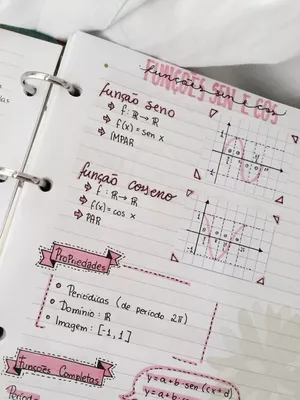 FUNÇÕES SEN E COS
funções sen e cos
função seno
f: ℝ → ℝ
f(x) = sen x
IMPAR
função cosseno
f: ℝ → ℝ
f(x) = cos x
PAR
Propriedades
Periódicas (de período 2π)
Domínio: ℝ
Imagem: [-1, 1]
Funções Completas
y = a + b · sen (cx + d)
Período